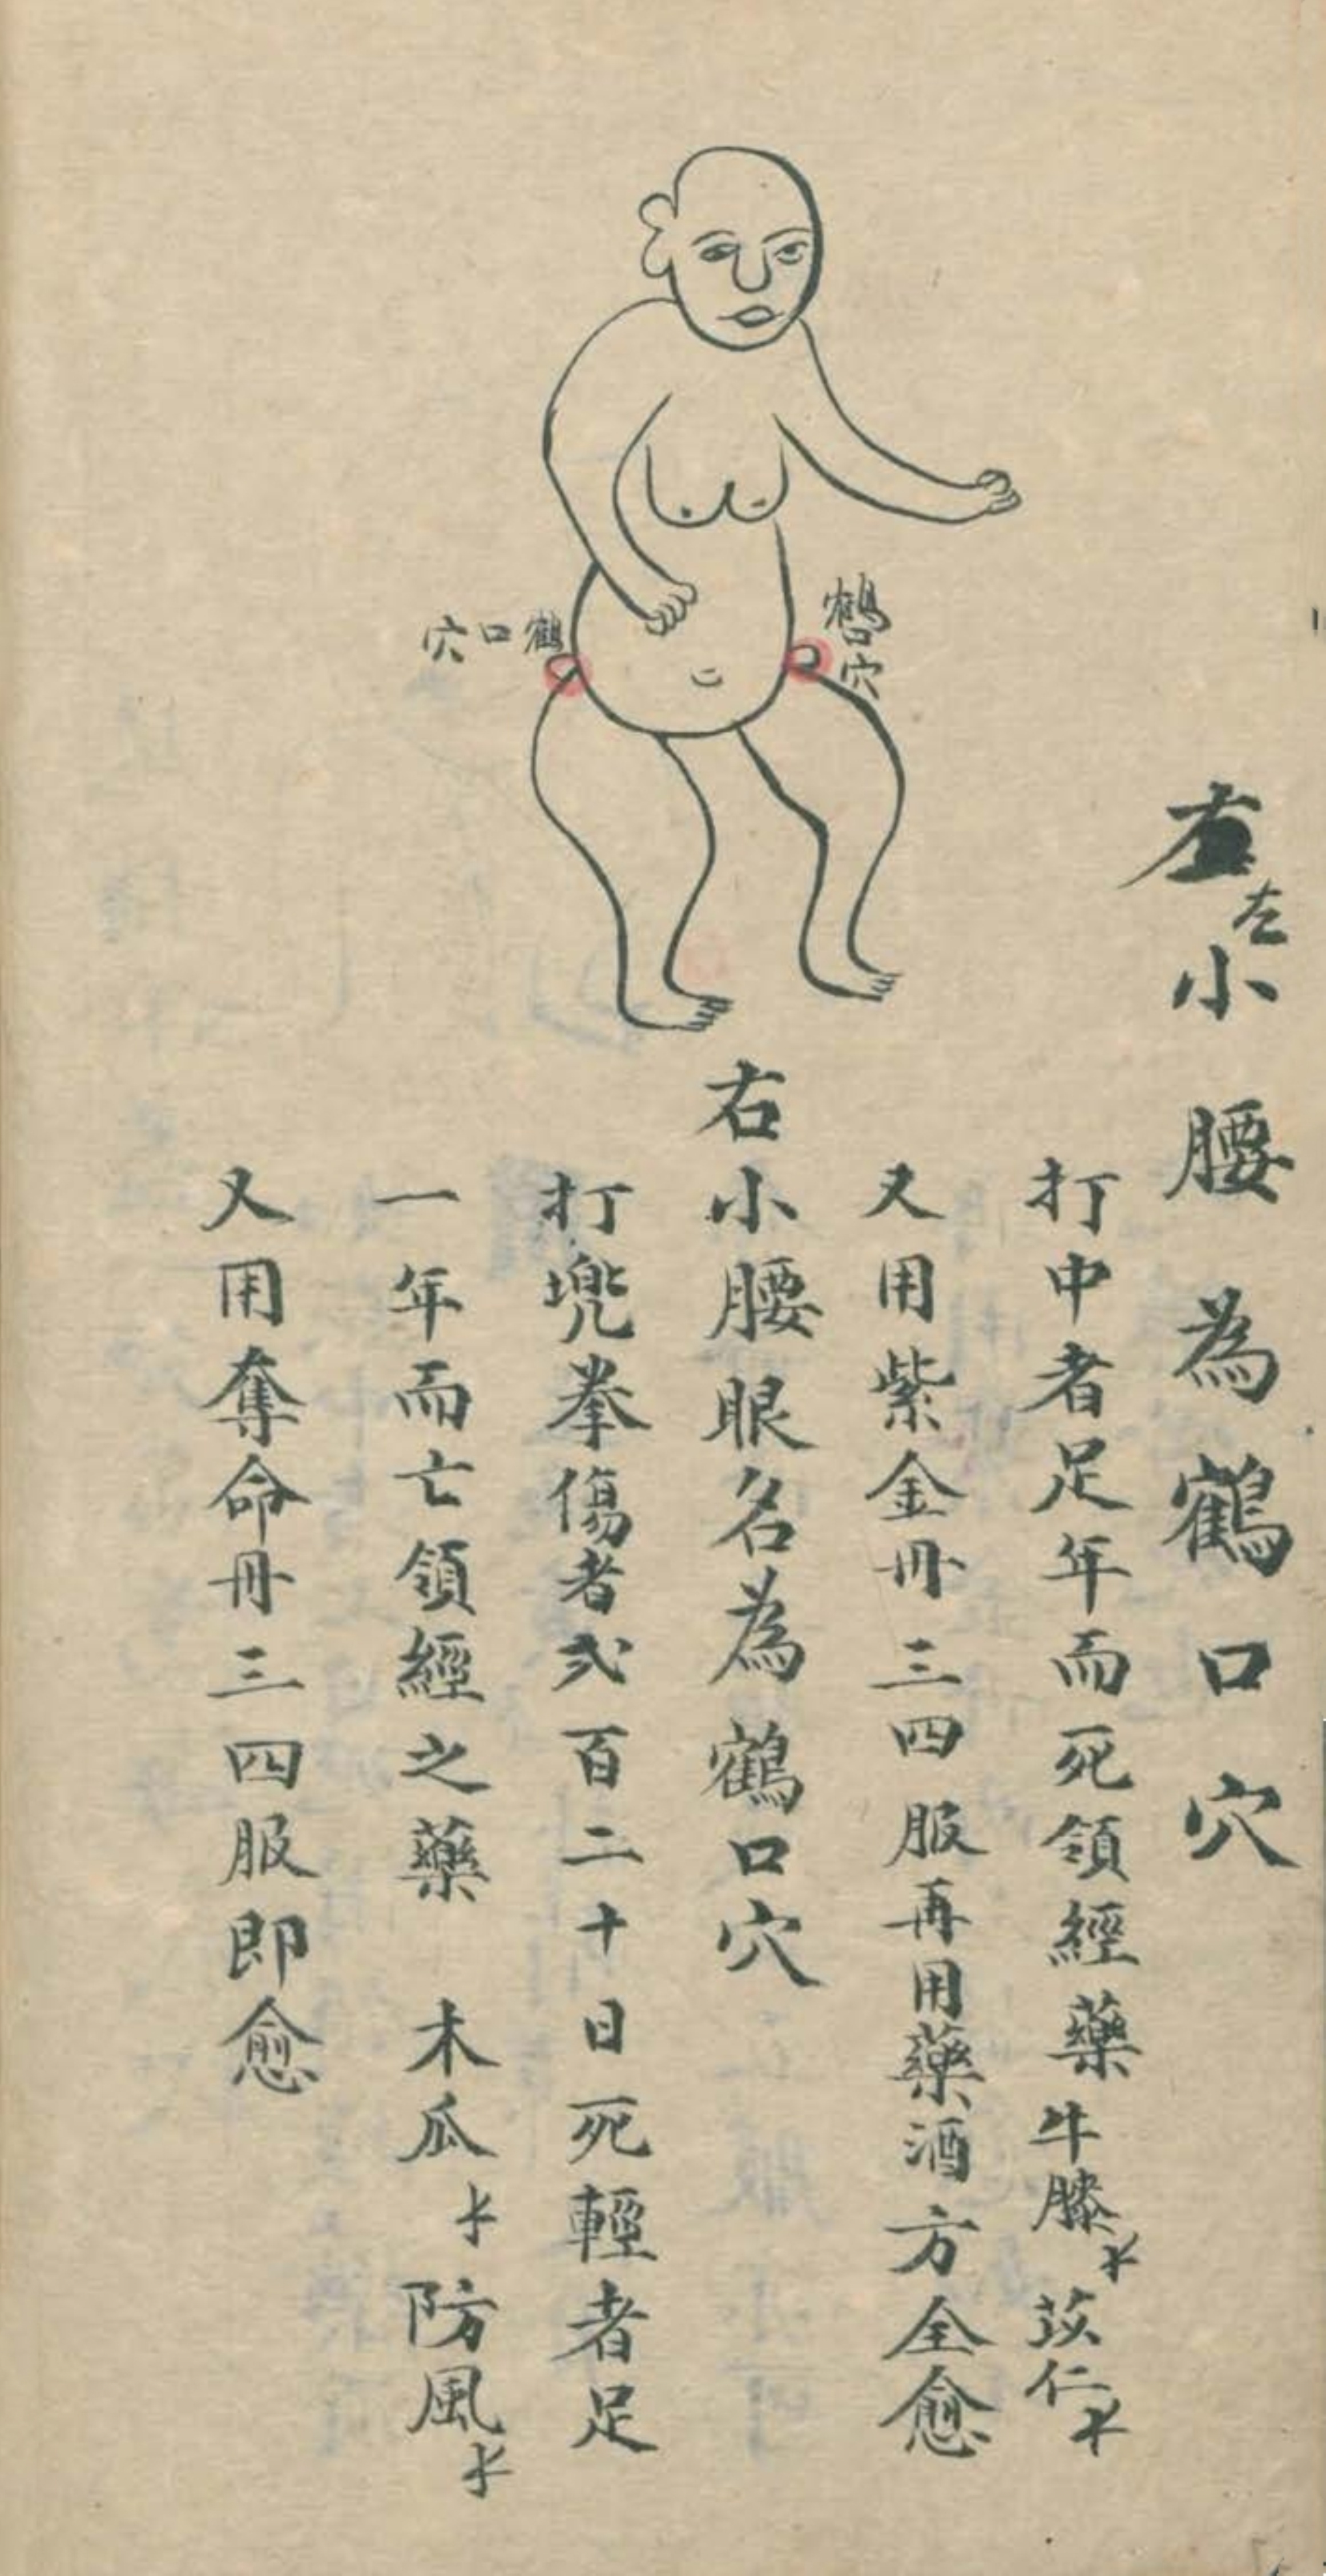 左小腰為鶴口穴
打中者足年而死領經藥牛膝 苡仁
又用紫金丹三四服再用藥酒方全愈
右小腰眼名為鶴口穴
打兜拳傷者弍百二十日死輕者足
一年而亡領經之藥 木瓜 防風
又用奪命丹三四服即愈
鶴口穴
鶴口穴